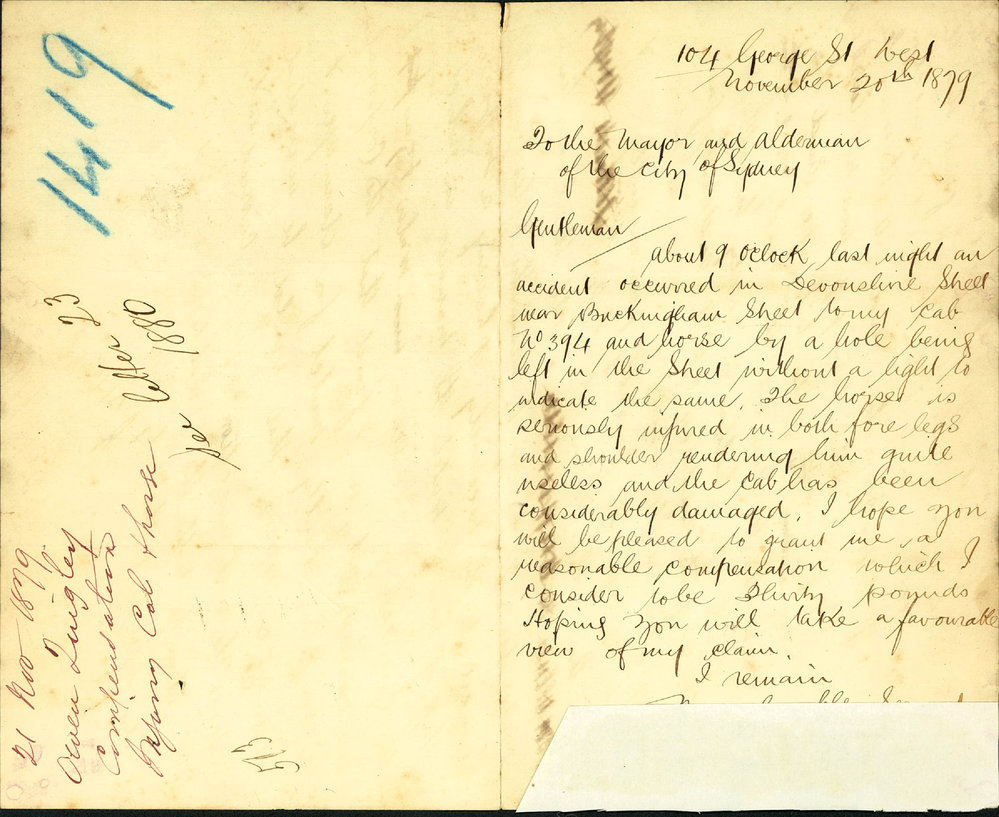 1419
per letter 23
1880
21 Nov 1879
Owen Quigley
Compensation
Injury Cab & horse
104 George St West
November 20th 1879
To the Mayor and Alderman
of the City of Sydney
Gentleman
About 9 OClock last night an
accident occurred in Devonshire Street
near Buckingham Street to my Cab
No 394 and horse by a hole being
left in the Street without a light to
indicate the same. The horse is
seriously injured in both fore legs
and shoulder rendering him quite
useless and the Cab has been
considerably damaged. I hope you
will be pleased to grant me a
reasonable compensation which I
consider to be Thirty pounds
Hoping you will take a favourable
view of my claim.
I remain